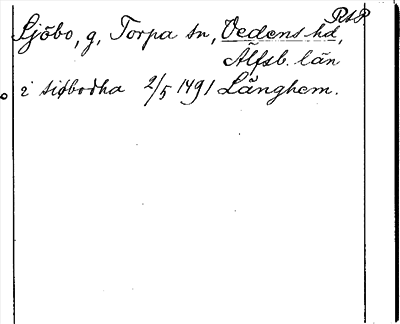 RsP
Sjöbo, g, Torpa sn, Vedens hd,
Älfsb. län
i siöbodha 2/5 1491 Långhem.